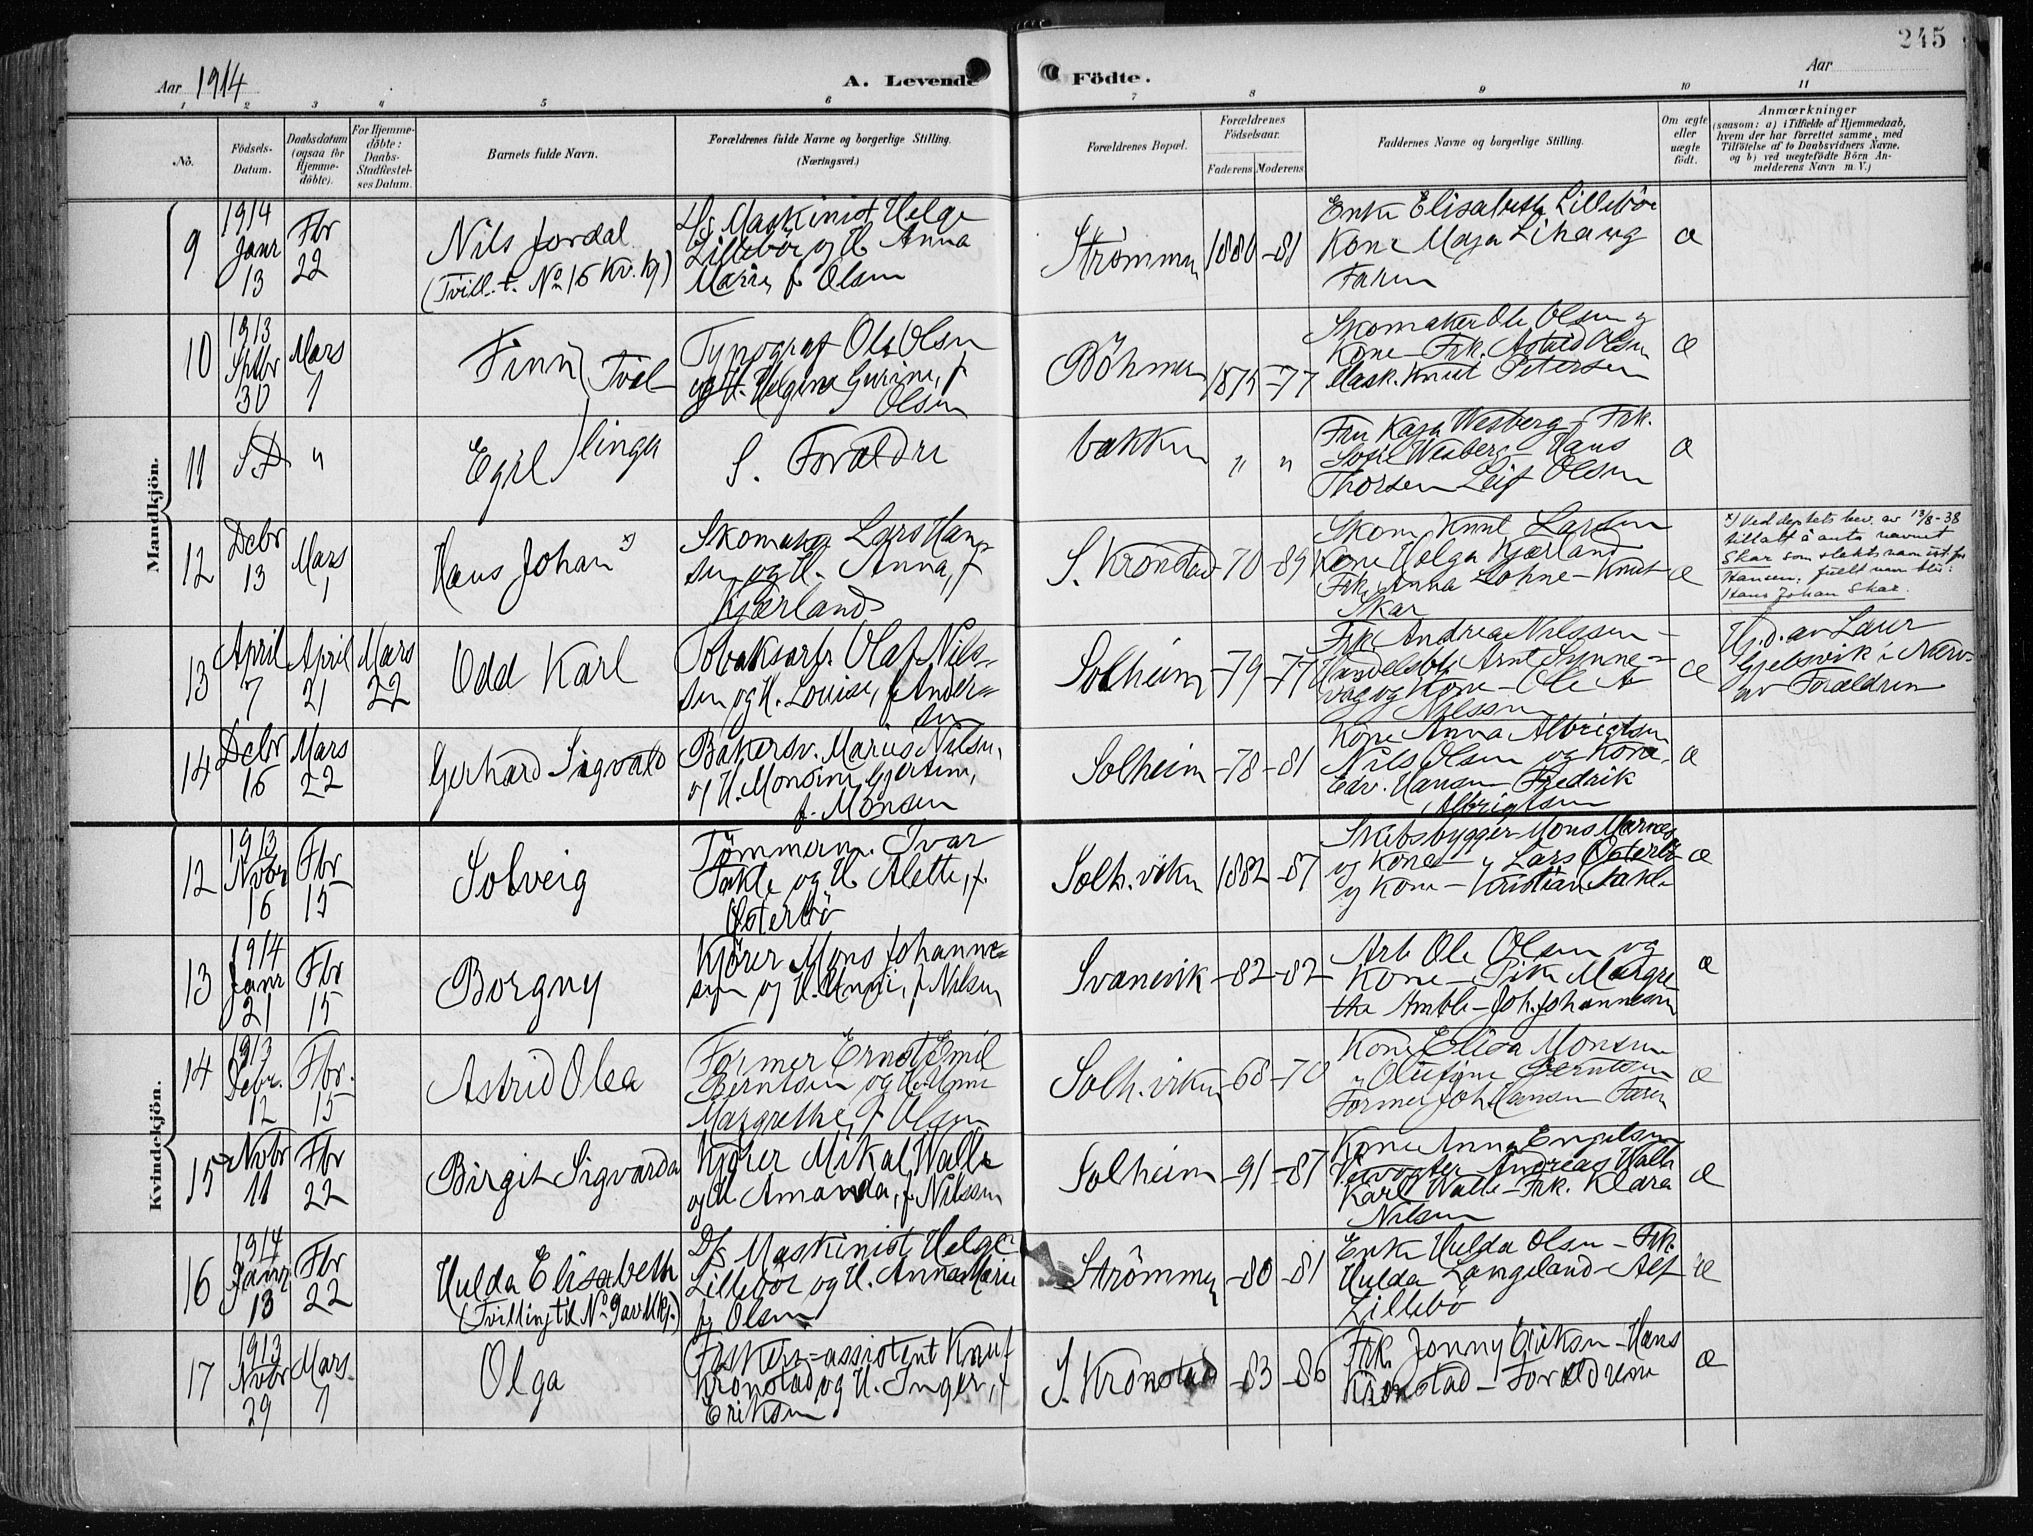 245
Aar 1914
A. Levende Födte.
Aar
1 2 3 4 5 6 7 8 9 10 11
No.
Födsels-Datum.
Daabsdatum (ogsaa for Hjemme-döbte).
For Hjemme-döbte: Daabs-Stadfæstel-ses Datum.
Barnets fulde Navn.
Forældrenes fulde Navne og borgerlige Stilling.
(Næringsvei.)
Forældrenes Bopæl.
Forældrenes Födselsaar.
Faderens Moderens
Faddernes Navne og borgerlige Stilling.
Om ægte eller uægte födt.
Anmærkninger
(saasom: a) i Tilfælde af Hjemmedaab,
hvem der har forrettet samme, med
Tilföielse af to Daabsvidners Navne.
og b) ved uægtefödte Börn An-
melderens Navn m. V.)
Mandkjön.
9
1914 Janr 13
Fbr 22
Nils Jordal
(Tvill. t. No 16 Kv. kj)
D/s Maskinist Helge
Lillebör og H. Anna
Marie, f. Olsen
Strömmen
1880 -81
Enke Elisabeth Lillebör
Kone Maja Lihaug
Faren
æ
10
1913 Septbr 30
Mars 1
Finn
Tvil-
Typograf Ole Olsen
og H. Helgine Gurine, f.
Olsen
Böhmer
1875 -77
Skomaker Ole Olsen og
Kone - Frk. Astrid Olsen
Mask. Knut Petersen
æ
11
S. D.
"
Egil
linger
S. Forældre
bakken
" "
Fru Kaja Wesberg - Frk.
Sofie Wesberg - Hans
Thorsen Leif Olsen
æ
12
Debr 13
Mars 1
Hans Johan x)
Skomaker Lars Han-
sen og H. Anna, f.
Kjærland
S. Kronstad
-70 -89
Skom. Knut Larsen
Kone Helga Kjærland
Frk. Anna Lohne - Knut
Skar
æ
x) Ved deptets bev. av 13/8-38
tillatt å anta navnet
Skar som slektsnavn ist. for
Hansen, fullt navn blir:
Hans Johan Skar.
13
April 7
April 21
Mars 22
Odd Karl
Tobaksarb. Olaf Nils-
sen og H. Louise, f. Ander-
sen
Solheim
-79 -77
Frk. Andrea Nilssen -
Handelsbtj. Arnt Synne-
vaag og Kone - Ole A
Nilssen
æ
Hj.d. av Laur
Gjelsvik i Nærv.
av Forældrene
14
Debr 16
Mars 22
Gerhard Sigvald
Bakersv. Marius Nilsen,
og H. Monsine Gjertine,
f. Monsen
Solheim
-78 -81
Kone Anna Albrigtsen
Nils Olsen og Kone,
Edv. Hansen - Fredrik
Albrigtsen
æ
Kvindekjön.
12
1913 Novbr 16
Fbr 15
Solveig
Tömmerm. Ivar
Takle og H. Alette, f.
Österbö
Solh.viken
1882 -87
Skibsbygger Mons Marnes
og Kone - " Lars Österbö
og Kone - Kristian Takle
æ
13
1914 Janr 21
Fbr 15
Borgny
Kjörer Mons Johanne-
sen og H. Anni, f. Nilsen
Svanevik
-82 -82
Arb Ole Olsen og
Kone - Pike Margre
the Amble - Joh. Johannesen
æ
14
1913 Debr. 12
Fbr. 15
Astrid Olea
Former Ernst Emil
Berntsen og H. Anne
Margrethe, f. Olsen
Solh.viken
-68 -70
Kone Elisa Monsen
" Olufine Berntsen
Former Joh Hansen Faren
æ
15
Novbr 11
Fbr 22
Birgit Sigvarda
Kjörer Mikal Walle
og H. Amanda, f. Nilssen
Solheim
-91 -87
Kone Anna Engelsen
Veivogter Andreas Walle
Karl Walle - Frk. Klara
Nilsen
æ
16
1914 Janr 13
Fbr 22
Hulda Elisabeth
(Tvilling til No 9 av Mkj.)
D/s Maskinist Helge
Lillebör og H. Anna Marie
f. Olsen
Strömmen
-80 -81
Enke Hulda Olsen - Frk.
Hulda Langeland - Alf
Lillebö
æ
17
1913 Novbr 29
Mars 1
Olga
Fiskeri-assistent Knut
Kronstad og H. Inger, f.
Eriksen
S. Kronstad
-83 -86
Frk. Jenny Eriksen - Hans
Kronstad - Forældrene
æ